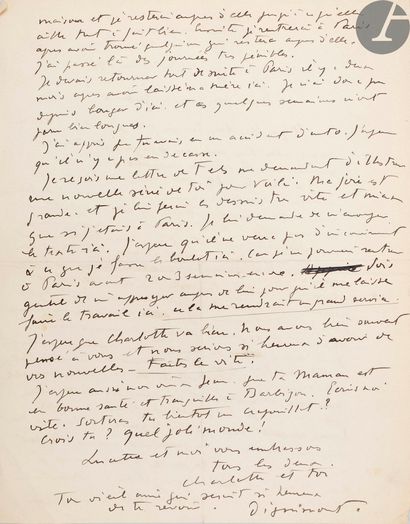 maison et je resterai auprès d'elle jusqu'à ce qu'elle
aille tout à fait bien. Ensuite je rentrerai à Paris
après avoir trouvé quelqu'un qui restera auprès d'elle.
J'ai passé là des journées très pénibles.
Je devais retourner tout de suite à Paris il y a deux
mois après avoir laissé ma mère ici. Je n'ai donc pu
depuis bouger d'ici. et ces quelques semaines m'ont
paru bien longues.
J'ai appris que tu avais eu un accident d'auto. J'espère
qu'il n'y a pas eu de casse.
Je reçois une lettre de Tels me demandant d'illustrer
une nouvelle série de toi pour Voilà. Ma joie est
grande. et je lui ferai les dessins très vite et mieux
que si j'étais à Paris. Je lui demande de m'envoyer
le texte ici. J'espère qu'il ne verra pas d'inconvénient
à ce que je fasse le boulot ici. Car je ne pourrai rentrer
à Paris avant 2 ou 3 semaines encore. Sois
gentil de m'appuyer auprès de lui pour qu'il me laisse
faire le travail ici. cela me rendrait un grand service.
J'espère que Charlotte va bien. Nous avons bien souvent
pensé à vous et nous serions si heureux d'avoir de
vos nouvelles — Faites le vite.
J'espère aussi mon vieux Jean, que ta Maman est
en bonne santé et tranquille à Barbizon. Ecris moi
vite. Sortiras tu bientôt un crapouillot?
Crois tu? Quel joli monde!
et moi vous embrassons
tous les deux
Charlotte et toi
Ton vieil ami qui serait si heureux
de te revoir. Dignimont.